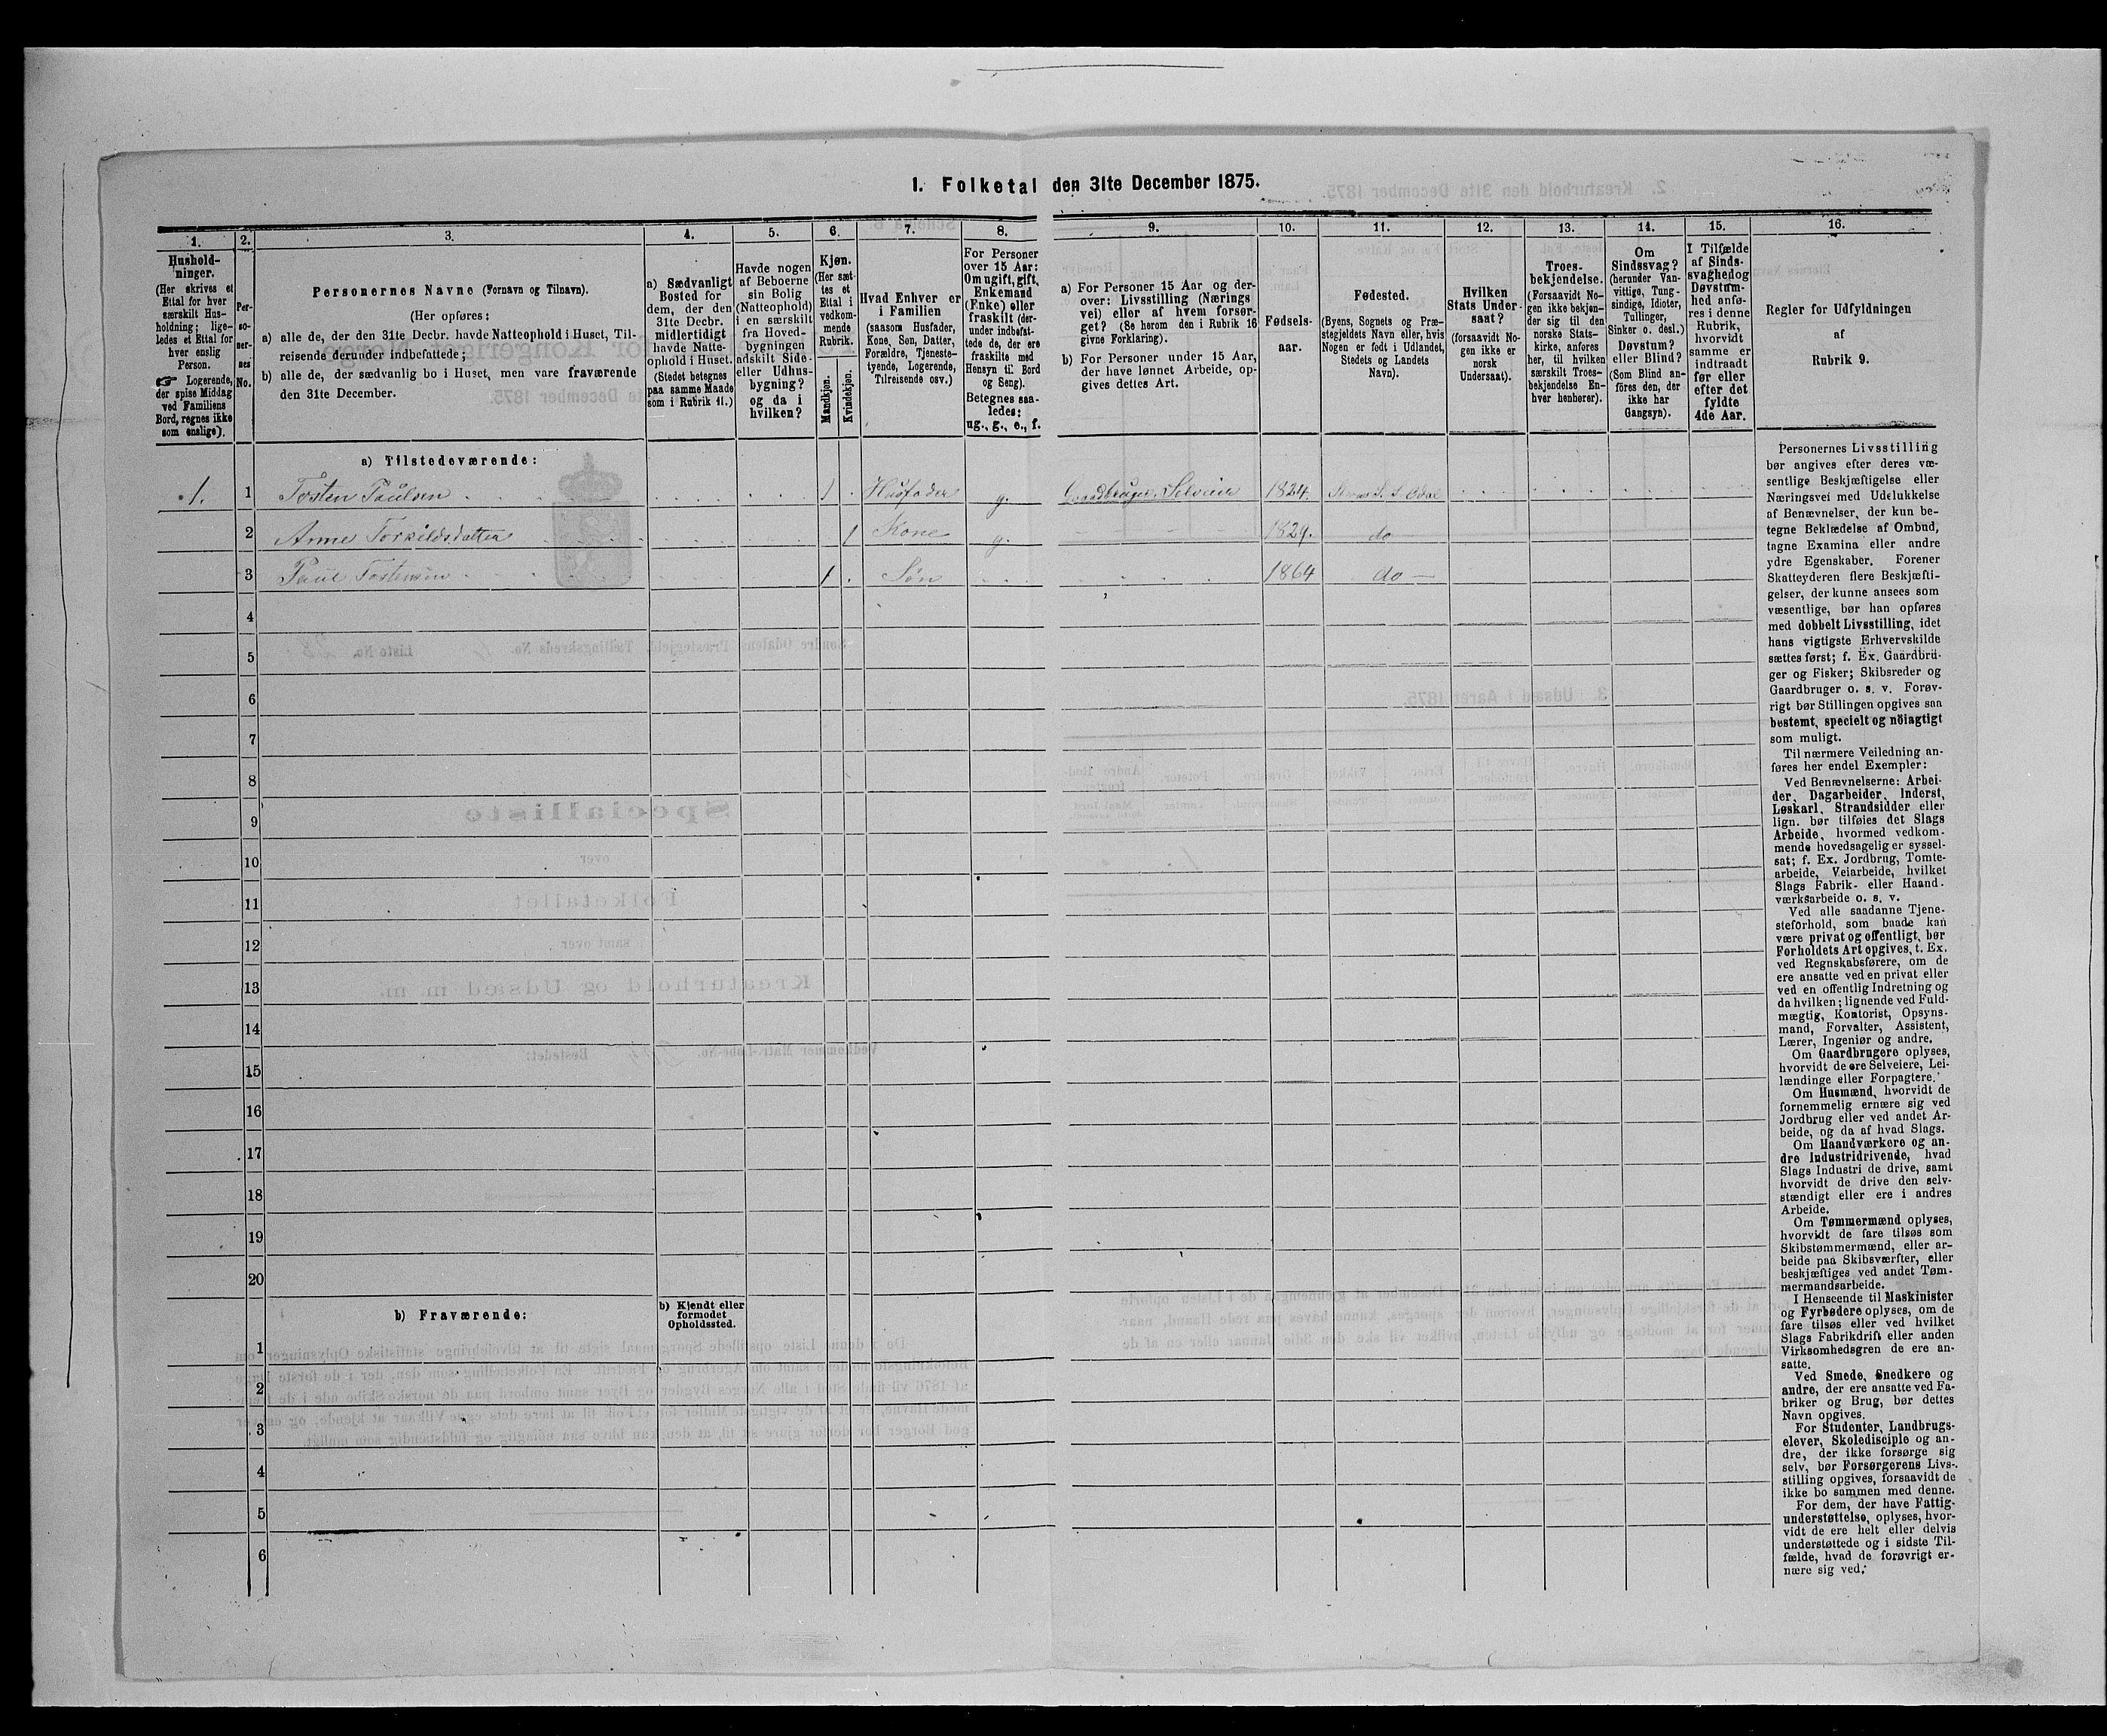 I. Folketal den 31te December 1875.
1. 2. 3. 4. 5. 6. 7. 8. 9. 10. 11. 12. 13. 14. 15. 16.
Hushold-
ninger.
(Her skrives et
Ettal for hver
særskilt Hus-
holdning; lige-
ledes et Ettal for
hver enslig
Person.
☞ Logerende,
der spise Middag
ved Familiens
Bord, regnes ikke
som enslige).
Per-
so-
ner-
nes
No.
Personernes Navne (Fornavn og Tilnavn).
(Her opføres:
a) alle de, der den 31te Decbr. havde Natteophold i Huset, Til-
reisende derunder indbefattede;
b) alle de, der sædvanlig bo i Huset, men vare fraværende
den 31te December.
a) Sædvanligt
Bosted for
dem, der den
31te Decbr.
midlertidigt
havde Natte-
ophold i Huset.
(Stedet betegnes
paa samme Maade
som i Rubrik 11.)
Havde nogen
af Beboerne
sin Bolig
(Natteophold)
i en særskilt
fra Hoved-
bygningen
adskilt Side-
eller Udhus-
bygning?
og da i
hvilken?
Kjøn.
(Her sæt-
tes et
Ettal i
vedkom-
mende
Rubrik.
Mandkjøn.
Kvindekjøn.
Hvad Enhver er
i Familien
(saasom Husfader,
Kone, Søn, Datter,
Forældre, Tjeneste-
tyende, Logerende,
Tilreisende osv.)
For Personer
over 15 Aar:
Om ugift, gift,
Enkemand
(Enke) eller
fraskilt (der-
under indbefat-
tede de, der ere
fraskilte med
Hensyn til Bord
og Seng).
Betegnes saa-
ledes:
ug., g., e., f.
a) For Personer 15 Aar og der-
over: Livsstilling (Nærings
vei) eller af hvem forsør-
get? (Se herom den i Rubrik 16
givne Forklaring).
b) For Personer under 15 Aar,
der have lønnet Arbeide, op-
gives dettes Art.
Fødsels-
aar.
Fødested.
(Byens, Sognets og Præ-
stegjeldets Navn eller, hvis
Nogen er født i Udlandet,
Stedets og Landets
Navn).
Hvilken
Stats Under-
saat?
(forsaavidt No-
gen ikke er
norsk
Undersaat).
Troes-
bekjendelse.
(Forsaavidt No-
gen ikke bekjen-
der sig til den
norske Stats-
kirke, anføres
her, til hvilken
særskilt Troes-
bekjendelse En-
hver henhører).
Om
Sindssvag?
(herunder Van-
vittige, Tung-
sindige, Idioter,
Tullinger,
Sinker o. desl.)
Døvstum?
eller Blind?
(Som Blind an-
føres den, der
ikke har
Gangsyn).
I Tilfælde
af Sinds-
svaghed og
Døvstum-
hed anfø-
res i denne
Rubrik,
hvorvidt
samme er
indtraadt
før eller
efter det
fyldte
4de Aar.
Regler for Udfyldningen
af
Rubrik 9.
a) Tilstedeværende:
1. 1 Tosten Paulsen 1 Husfader g. Gaardbruger, Selveier 1824. S. Odal
2 Anne Torkildsdatter 1 Kone g. 1829. do
3 Paul Tostensen 1 Søn 1864 do
4
5
6
7
8
9
10
11
12
13
14
15
16
17
18
19
20
b) Fraværende:
b) Kjendt eller
formodet
Opholdssted.
1
2
3
4
5
6
Personernes Livsstilling
bør angives efter deres væ-
sentlige Beskjæftigelse eller
Næringsvei med Udelukkelse
af Benævnelser, der kun be-
tegne Beklædelse af Ombud,
tagne Examina eller andre
ydre Egenskaber. Forener
Skatteyderen flere Beskjæfti-
gelser, der kunne ansees som
væsentlige, bør han opføres
med dobbelt Livsstilling, idet
hans vigtigste Erhvervskilde
sættes først; f. Ex. Gaardbru-
ger og Fisker; Skibsreder og
Gaardbruger o. s. v. Forøv-
rigt bør Stillingen opgives saa
bestemt, specielt og nöiagtigt
som muligt.
Til nærmere Veiledning an-
føres her endel Exempler:
Ved Benævnelserne: Arbei-
der, Dagarbeider, Inderst,
Løskarl, Strandsidder eller
lign. bør tilføies det Slags
Arbeide, hvormed vedkom-
mende hovedsagelig er syssel-
sat; f. Ex. Jordbrug, Tomte-
arbeide, Veiarbeide, hvilket
Slags Fabrik- eller Haand-
værksarbeide o. s. v.
Ved alle saadanne Tjene-
steforhold, som baade kan
være privat og offentligt, bør
Forholdets Art opgives, t. Ex.
ved Regnskabsførere, om de
ere ansatte ved en privat eller
ved en offentlig Indretning og
da hvilken; lignende ved Fuld-
mægtig, Kontorist, Opsyns-
mand, Forvalter, Assistent,
Lærer, Ingeniør og andre.
Om Gaardbrugere oplyses,
hvorvidt de ere Selveiere, Lei-
lændinge eller Forpagtere.
Om Husmænd, hvorvidt de
fornemmelig ernære sig ved
Jordbrug eller ved andet Ar-
beide, og da af hvad Slags.
Om Haandværkere og an-
dre Industridrivende, hvad
Slags Industri de drive, samt
hvorvidt de drive den selv-
stændigt eller ere i andres
Arbeide.
Om Tømmermænd oplyses,
hvorvidt de fare tilsøs som
Skibstømmermænd, eller ar-
beide paa Skibsværfter, eller
beskjæftiges ved andet Tøm-
mermandsarbeide.
I Henseende til Maskinister
og Fyrbødere oplyses, om de
fare tilsøs eller ved hvilket
Slags Fabrikdrift eller anden
Virksomhedsgren de ere an-
satte.
Ved Smede, Snedkere og
andre, der ere ansatte ved Fa-
briker og Brug, bør dettes
Navn opgives.
For Studenter, Landbrugs-
elever, Skoledisciple og an-
dre, der ikke forsørge sig
selv, bør Forsørgerens Livs-
stilling opgives, forsaavidt de
ikke bo sammen med denne.
For dem, der have Fattig-
understøttelse, oplyses, hvor-
vidt de ere helt eller delvis
understøttede og i sidste Til-
fælde, hvad de forøvrigt er-
nære sig ved.